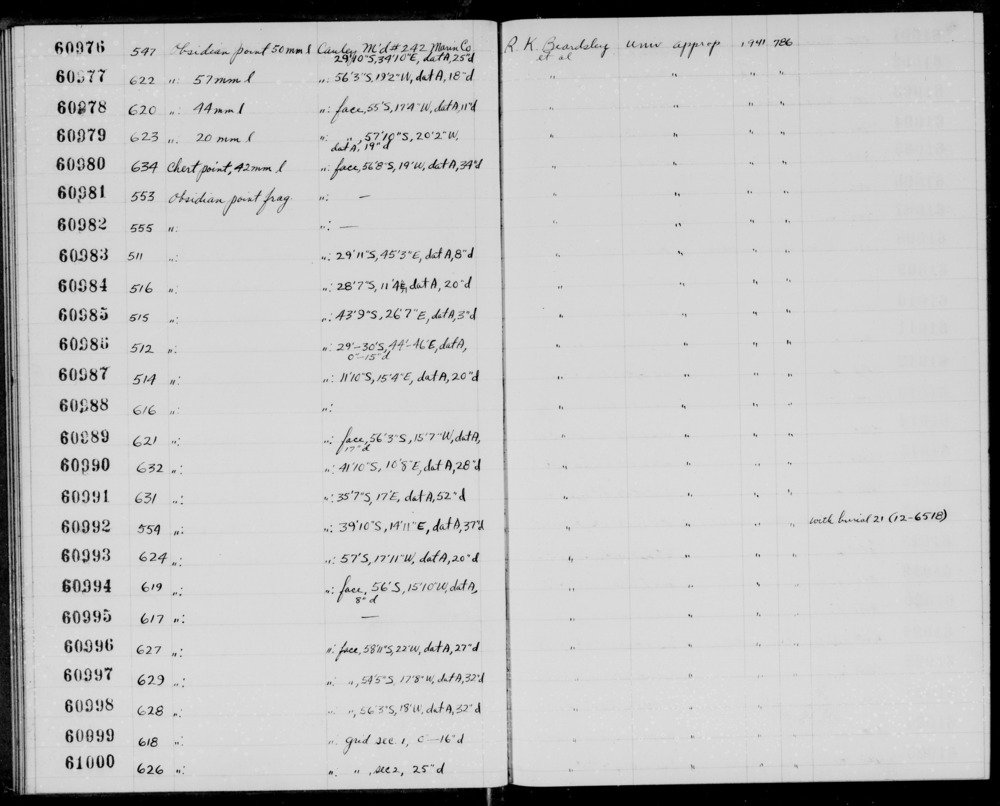 60976 547 Obsidian point 50mm l Cauley M'd #242 Marin Co R. K. Beardsley Univ approp 1941 786
29'10"S, 34'10"E, dat A, 25"d et al
60977 622 ": 57mm l ": 56'3"S, 19'2"W, dat A, 18"d " " " "
60978 620 ": 44mm l ": face, 55'S, 17'4"W, dat A, 11"d " " " "
60979 623 ": 20mm l ": ", 57'10"S, 20'2"W, " " " "
dat A, 19"d
60980 634 Chert point, 42mm l ": face, 56'8"S, 19'W, dat A, 34"d " " " "
60981 553 Obsidian point frag ": — " " " "
60982 555 ": ": — " " " "
60983 511 ": ": 29'11"S, 45'3"E, dat A, 8"d " " " "
60984 516 ": ": 28'7"S, 11'4"E, dat A, 20"d " " " "
60985 515 ": ": 43'9"S, 26'7"E, dat A, 3"d " " " "
60986 512 ": ": 29'–30'S, 44'–46'E, dat A, " " " "
0"–15"d
60987 514 ": ": 11'10"S, 15'4"E, dat A, 20"d " " " "
60988 616 ": ": " " " "
60989 621 ": ": face, 56'3"S, 15'7"W, dat A, " " " "
17"d
60990 632 ": ": 41'10"S, 10'8"E, dat A, 28"d " " " "
60991 631 ": ": 35'7"S, 17'E, dat A, 52"d " " " "
60992 554 ": ": 39'10"S, 14'11"E, dat A, 37"d " " " " with burial 21 (12-6518)
60993 624 ": ": 57'S, 17'11"W, dat A, 20"d " " " "
60994 619 ": ": face, 56'S, 15'10"W, dat A, " " " "
8"d
60995 617 ": — " " " "
60996 627 ": ": face, 58'11"S, 22'W, dat A, 27"d " " " "
60997 629 ": ": ", 54'5"S, 17'8"W, dat A, 32"d " " " "
60998 628 ": ": ", 56'3"S, 18'W, dat A, 32"d " " " "
60999 618 ": ": grid sec 1, 0–16"d " " " "
61000 626 ": ": ", sec 2, 25"d " " " "